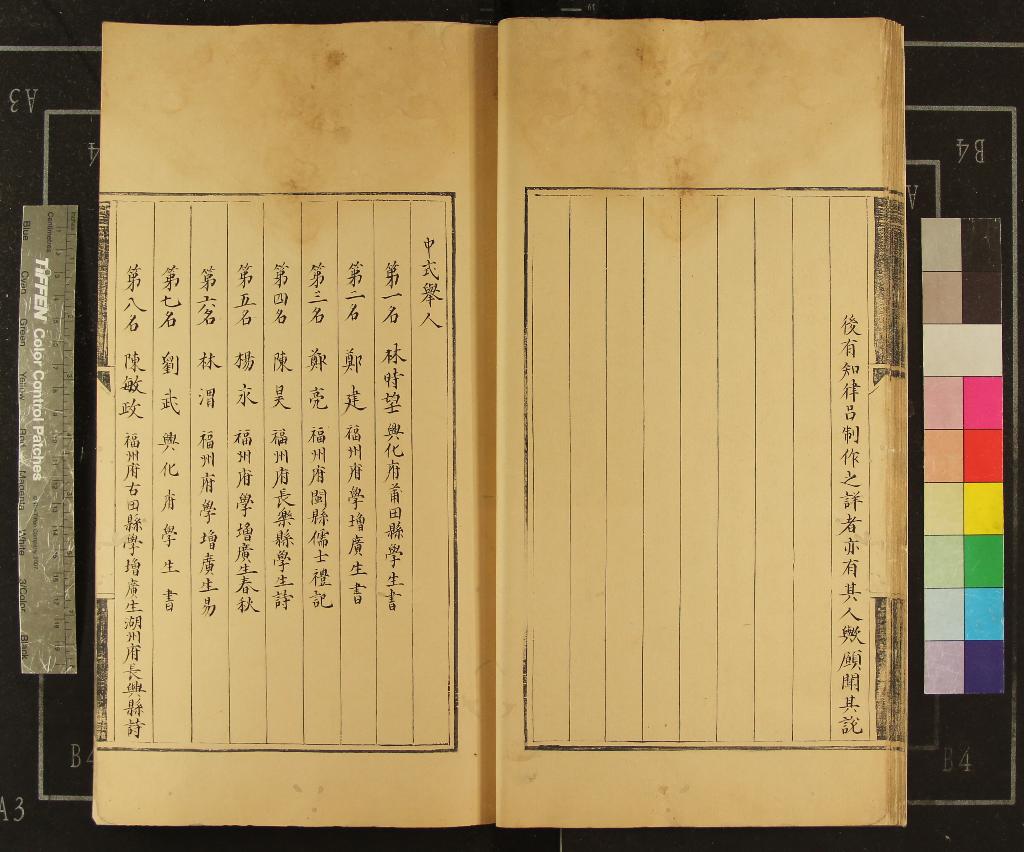 後有知律呂制作之詳者亦有其人歟願聞其說
中式舉人
第一名 林時望 興化府莆田縣學生書
第二名 鄭建 福州府學增廣生書
第三名 鄭亮 福州府閩縣儒士禮記
第四名 陳昊 福州府長樂縣學生詩
第五名 楊永 福州府學增廣生春秋
第六名 林渭 福州府學增廣生易
第七名 劉武 興化府學生書
第八名 陳敏政 福州府古田縣學增廣生湖州府長興縣詩
TIFFEN Color Control Patches
Centimetres
Blue
Green
White
3/Color
Black
A3
B4
A3
B4
B4